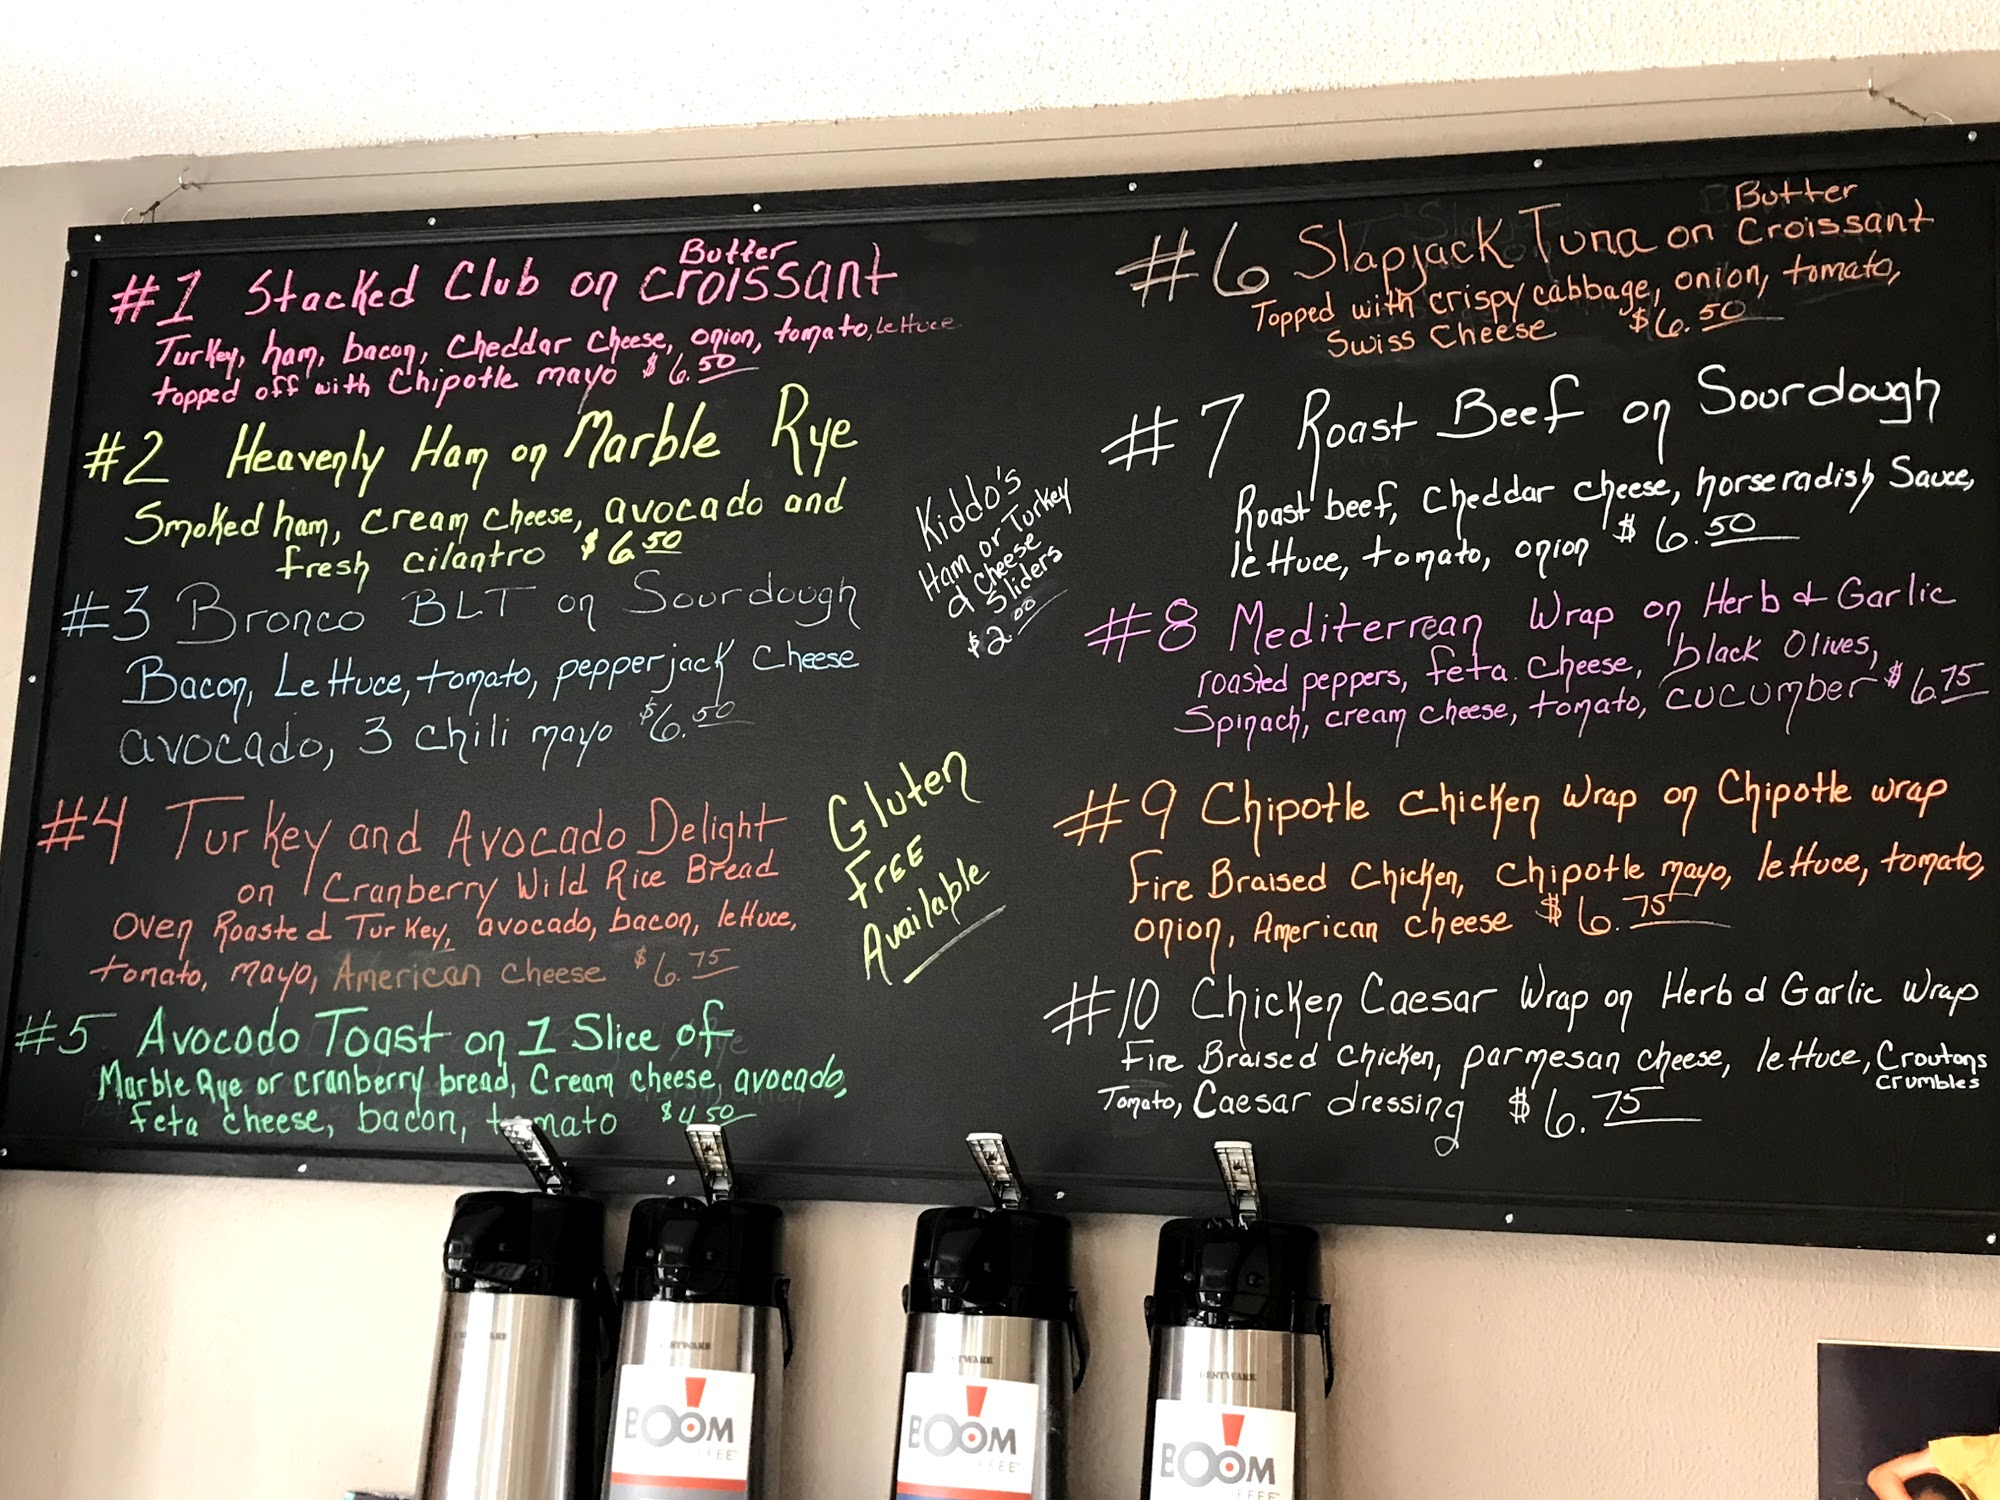 #1 Stacked Club on Butter Croissant
Turkey, ham, bacon, Cheddar Cheese, onion, tomato, lettuce
topped off with Chipotle mayo $6.50
#2 Heavenly Ham on Marble Rye
Smoked ham, cream cheese, avocado and
fresh cilantro $6.50
#3 Bronco BLT on Sourdough
Bacon, Lettuce, tomato, pepperjack Cheese
avocado, 3 chili mayo $6.50
#4 Turkey and Avocado Delight
on Cranberry Wild Rice Bread
Oven Roasted Turkey, avocado, bacon, lettuce,
tomato, mayo, American cheese $6.75
#5 Avocado Toast on 1 Slice of
Marble Rye or cranberry bread, Cream cheese, avocado,
feta cheese, bacon, tomato $4.50
Kiddo's
Ham or Turkey
& Cheese
Sliders
$2.00
Gluten
Free
Available
#6 Slapjack Tuna on Butter Croissant
Topped with crispy cabbage, onion, tomato,
Swiss Cheese $6.50
#7 Roast Beef on Sourdough
Roast beef, Cheddar cheese, horseradish Sauce,
lettuce, tomato, onion $6.50
#8 Mediterrean Wrap on Herb & Garlic
roasted peppers, feta cheese, black Olives,
Spinach, cream cheese, tomato, cucumber $6.75
#9 Chipotle Chicken Wrap on Chipotle wrap
Fire Braised Chicken, Chipotle mayo, lettuce, tomato,
onion, American cheese $6.75
#10 Chicken Caesar Wrap on Herb & Garlic Wrap
Fire Braised Chicken, parmesan cheese, lettuce, Croutons crumbles
Tomato, Caesar dressing $6.75
BOOM
BOOM
BOOM